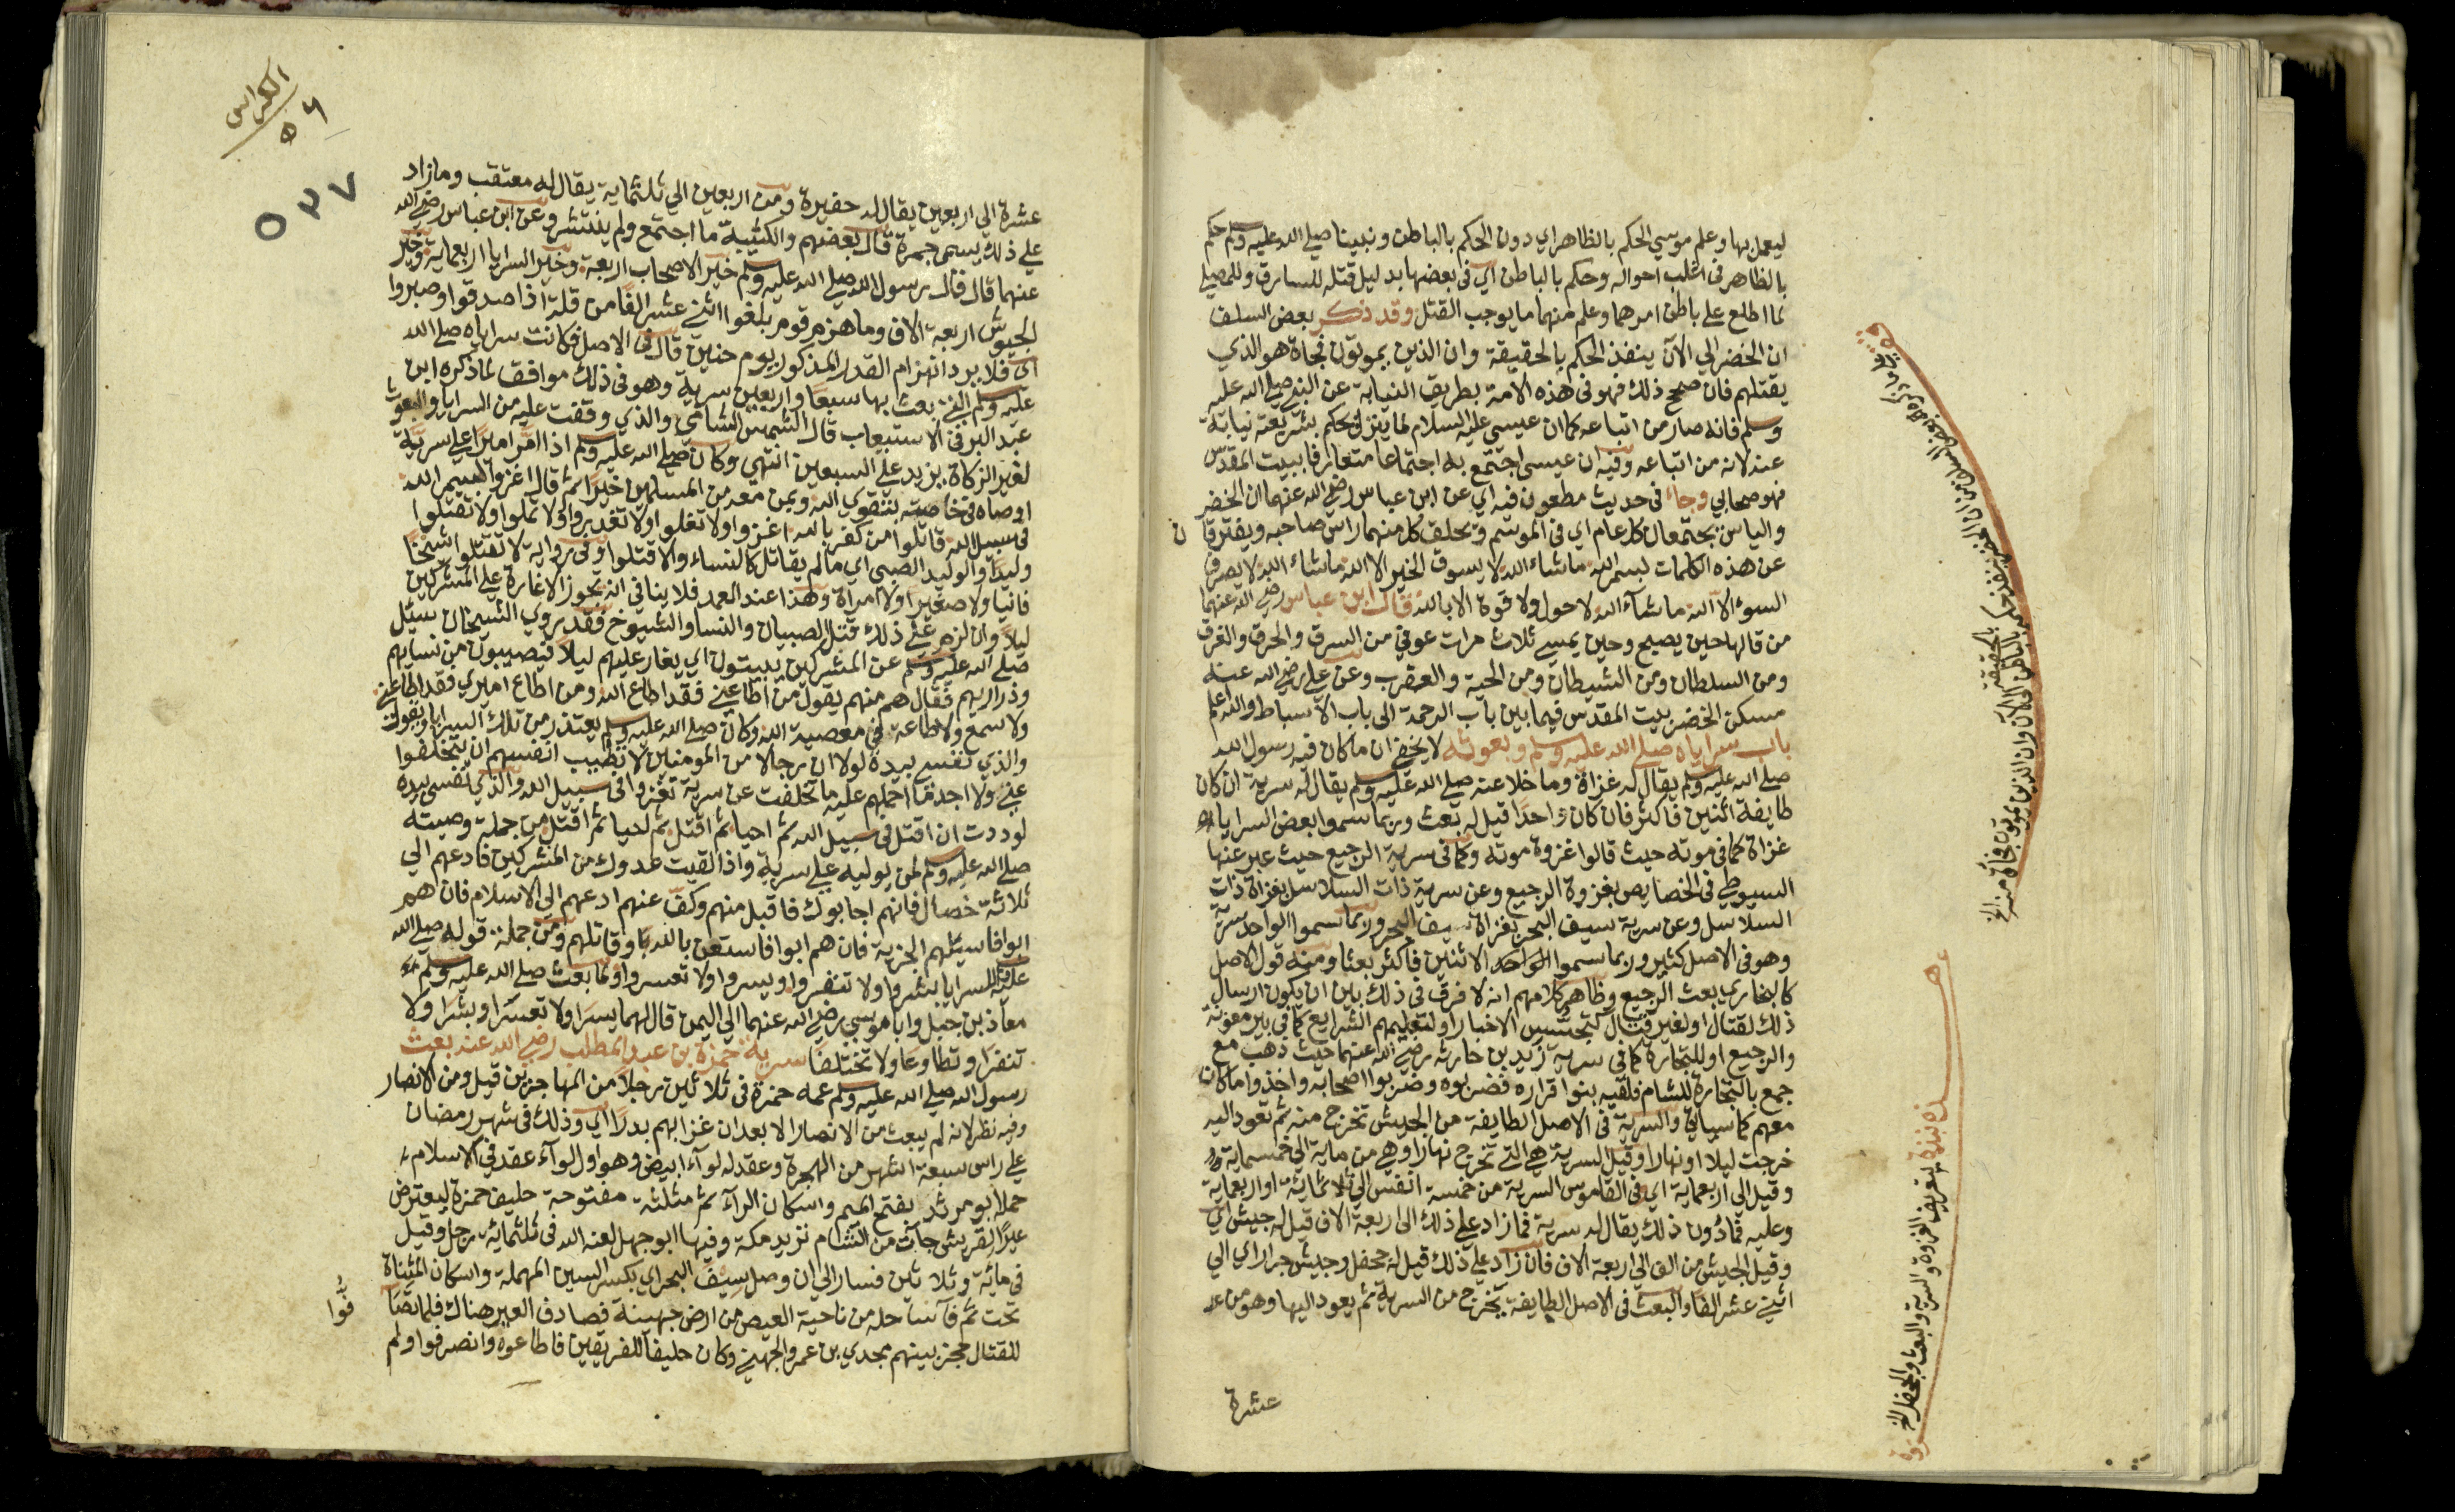 ليعمل بها وعلم موسي الحكم بالظاهر اي دون الحكم بالباطن ونبينا صلي الله عليه وسلم حكم
بالظاهر في اغلب احواله وحكم بالباطن اي في بعضها بدليل قتله للسارق وللمصلي
لما اطلع علي باطن امرهما وعلم منهما ما يوجب القتل وقد ذكر بعض السلف
ان الخضر الي الآن ينفذ الحكم بالحقيقة وان الذين يموتون فجاة هو الذي
يقتلهم فان صح ذلك فهو في هذه الامة بطريق النيابة عن النبي صلي الله عليه
وسلم فانه صار من اتباعه كما ان عيسي عليه السلام لما ينزل يحكم بشريعته نيابة
عنه لانه من اتباعه وفيه ان عيسي اجتمع به اجتماعا متعارفا ببيت المقدس
فهو صحابي وجاء في حديث مطعون فيه اي عن ابن عباس رضي الله عنهما ان الخضر
والياس يجتمعان كل عام اي في الموسم ويحلق كل منهما راس صاحبه ويفترقان
عن هذه الكلمات بسم الله ما شاء الله لا يسوق الخير الا الله ما شاء الله لا يصرف
السوء الا الله ما شآء الله لا حول ولا قوة الا بالله قال ابن عباس رضي الله عنهما
من قالها حين يصبح وحين يمسي ثلاث مرات عوفي من السرق والحرق والغرق
ومن السلطان ومن الشيطان ومن الحية والعقرب وعن علي رضي الله عنه
مسكن الخضر بيت المقدس فيما بين باب الرحمة الي باب الاسباط والله اعلم
باب سراياه صلي الله عليه وسلم وبعوثه لا يخفي ان ما كان فيه رسول الله
صلي الله عليه وسلم يقال له غزاة وما خلا عنه صلي الله عليه وسلم يقال له سرية ان كان
طايفة اثنين فاكثر فان كان واحدا قيل له بعث وربما سموا بعض السرايا
غزاة كما في موته حيث قالوا غزوة موته وكما في سرية الرجيع حيث عبر عنها
السيوطي في الخصايص بغزوة الرجيع وعن سرية ذات السلاسل بغزاة ذات
السلاسل وعن سرية سيف البحر بغزاة سيف البحر وربما سموا الواحد سرية
وهو في الاصل كثير وربما سموا الاثنين فاكثر بعثا ومنه قول الاصل
كالبخاري بعث الرجيع وظاهر كلامهم انه لا فرق في ذلك بين ان يكون ارسال
ذلك لقتال او لغير قتال كتجسس الاخبار او لتعليمهم الشرايع كما في بير معونة
والرجيع او للتجارة كما في سرية زيد بن حارثه رضي الله عنهما حيث ذهب مع
جمع بالتجارة للشام فلقيه بنوا قراره فضربوه وضربوا اصحابه واخذوا ما كان
معهم كما سياتي والسرية في الاصل الطايفة من الجيش تخرج منه ثم تعود اليه
خرجت ليلا او نهارا وقيل السرية هي التي تخرج نهارا وهي من ماية الي خمسماية
وقيل الي اربعماية اي في القاموس السرية من خمسة انفس الي ثلاثماية او اربعماية
وعليه فما دون ذلك يقال له سرية فما زاد علي ذلك الي اربعة الاف قيل له جيش اي
وقيل الجيش من الف الي اربعة الاف فان زاد علي ذلك قيل له جحفل وجيش جرار اي الي
اثني عشر الفا والبعث في الاصل الطايفة تخرج من السرية ثم يعود اليها وهو من
عشرة
بعض السلف ان الخضر ينفذ حكمه بالباطن الي الآن وان الذين يموتون فجاة منه الخ
بالحقيقة
هذه نبذة بتعريف الغزوة والسرية والبعث والجحفل الخ
الكراس
٥٤
٥٣٧
عشرة الي اربعين يقال له حفيرة ومن اربعين الي ثلثماية يقال له معتقب وما زاد
علي ذلك يسمي جمرة قال بعضهم والكتيبة ما اجتمع ولم ينتشر وعن ابن عباس رضي الله
عنهما قال قال رسول الله صلي الله عليه وسلم خير الاصحاب اربعة وخير السرايا اربعماية وخير
الجيوش اربعة الاف وما هزم قوم بلغوا اثني عشر الفا من قلة اذا صدقوا وصبروا
اي فلا يرد انهزام القدر المذكور يوم حنين قال في الاصل فكانت سراياه صلي الله
عليه وسلم التي بعث بها سبعا واربعين سرية وهو في ذلك موافق لما ذكره ابن
عبد البر في الاستيعاب قال الشمس الشامي والذي وقفت عليه من السرايا والبعوث
لغير الزكاة يزيد علي السبعين انتهي وكان صلي الله عليه وسلم اذا امر اميرا علي سرية
اوصاه في خاصته بتقوي الله وبمن معه من المسلمين خيرا ثم قال اغزوا بسم الله
في سبيل الله قاتلوا من كفر بالله اغزوا ولا تغلوا ولا تغدروا ولا تمثلوا ولا تقتلوا
وليدا والوليد الصبي اي ما لم يقاتل كالنساء والا قتلوا وفي رواية لا تقتلوا شيخا
فانيا ولا صغيرا ولا امراة وهذا عند العمد فلا ينافي انه يجوز الاغارة علي المشركين
ليلا وان لزم علي ذلك قتل الصبيان والنسا والشيوخ فقد روي الشيخان سئل
صلي الله عليه وسلم عن المشركين يبيتون اي يغار عليهم ليلا فيصيبون من نسايهم
وذراريهم فقال هم منهم يقول من اطاعني فقد اطاع الله ومن اطاع اميري فقد اطاعني
ولا سمع ولا طاعة في معصية الله وكان صلي الله عليه وسلم يعتذر من تلك السرايا ويقول
والذي نفسي بيده لولا ان رجالا من المومنين لا تطيب انفسهم ان يتخلفوا
عني ولا اجد ما احملهم عليه ما تخلفت عن سرية تغزوا في سبيل الله والذي نفسي بيده
لوددت ان اقتل في سبيل الله ثم احيا ثم اقتل ثم احيا ثم اقتل من جملة وصيته
صلي الله عليه وسلم لمن يوليه علي سرية واذا لقيت عدوك من المشركين فادعهم الي
ثلاثة خصال فانهم اجابوك فاقبل منهم وكف عنهم ادعهم الي الاسلام فان هم
ابوا فاسئلهم الجزية فان هم ابوا فاستعن بالله وقاتلهم ومن جملة قوله صلي الله
عليه للسرايا بشروا ولا تنفروا ويسروا ولا تعسروا ولما بعث صلي الله عليه وسلم
معاذ بن جبل وابا موسي رضي الله عنهما الي اليمن قال لهما يسرا ولا تعسرا وبشرا ولا
تنفرا وتطاوعا ولا تختلفا سرية حمزة بن عبد المطلب رضي الله عنه بعث
رسول الله صلي الله عليه وسلم عمه حمزة في ثلاثين رجلا من المهاجرين قيل ومن الانصار
وفيه نظر لانه لم يبعث من الانصار الا بعد ان غزا بهم بدرا اي وذلك في شهر رمضان
علي راس سبعة اشهر من الهجرة وعقد له لوآء ابيض وهو اول لوآء عقد في الاسلام
حمله ابو مرثد بفتح الميم واسكان الرآء ثم مثلثة مفتوحة حليف حمزة ليعترض
عيرا لقريش جآت من الشام تريد مكة وفيها ابو جهل لعنه الله في ثلثماية رجل وقيل
في ماية وثلاثين فسار الي ان وصل سيف البحر اي بكسر السين المهملة واسكان المثناة
تحت ثم فآ ساحله من ناحية العيص من ارض جهينة فصادف العير هناك فلما تصافوا
للقتال حجز بينهم مجدي بن عمرو الجهني وكان حليفا للفريقين فاطاعوه وانصرفوا ولم